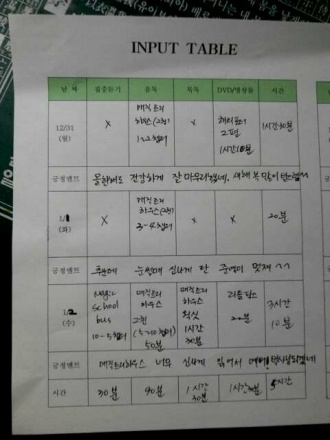 INPUT TABLE
날짜 집중듣기 음독 묵독 DVD/영상물 시간
12/31 (월) X 매직트리 하우스(2권) 1~2챕터 X 해리포터 2편 1시간10분 1시간30분
긍정멘트 올한해도 건강하게 잘 마무리했네. 새해 복 많이
1/1 (화) X 매직트리 하우스(2권) 3-4챕터 X X 20분
긍정멘트 눈썰매 신나게 탄 주영이 멋져 ^^
1/2 (수) Magic School bus 10-5챕터 매직트리 하우스 2권 (5~10챕터) 50분 매직트리 하우스 1시간 30분 리틀팍스 20분 3시간 10분
긍정멘트 매직트리하우스 너무 신나게 읽어서 예뻐!
시간 30분 90분 1시간 30분 1시간30분 5시간